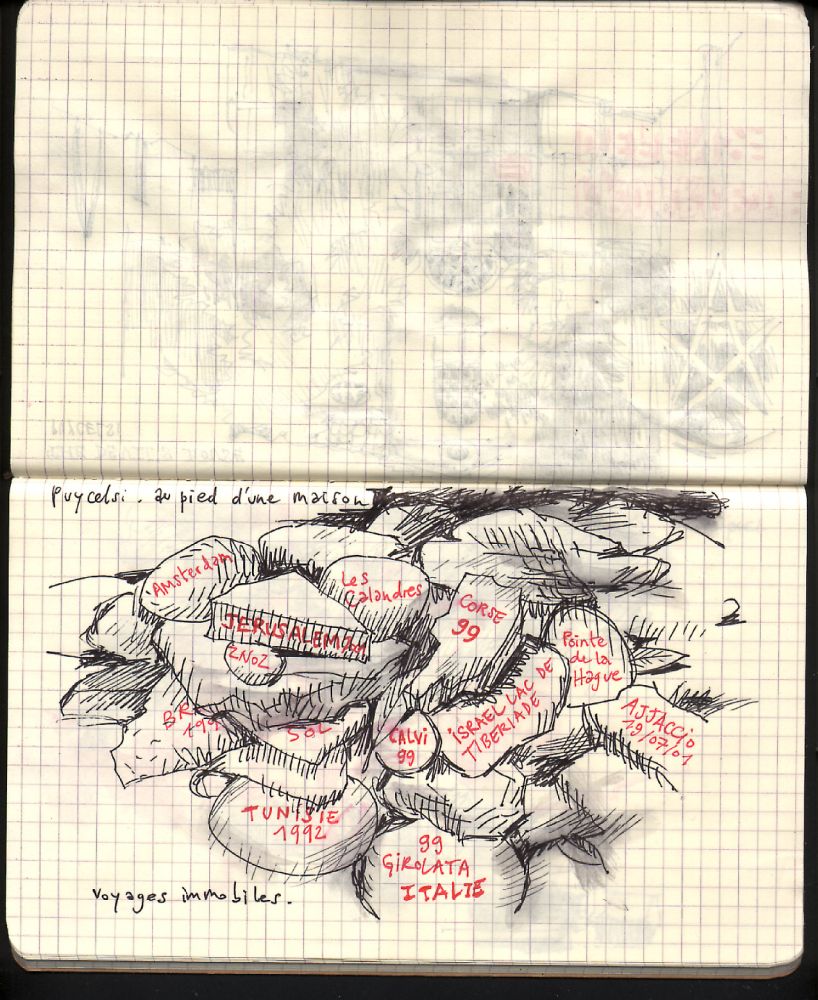 Puycelsi. au pied d'une maison
Amsterdam
Les
Calandres
CORSE
99
JERUSALEM
ZNOZ
Pointe
de la
Hague
BR
199
SOL
CALVI
99
ISRAEL LAC DE
TIBERIADE
AJJACCIO
19/07/01
TUNISIE
1992
99
GIROLATA
ITALIE
Voyages immobiles.